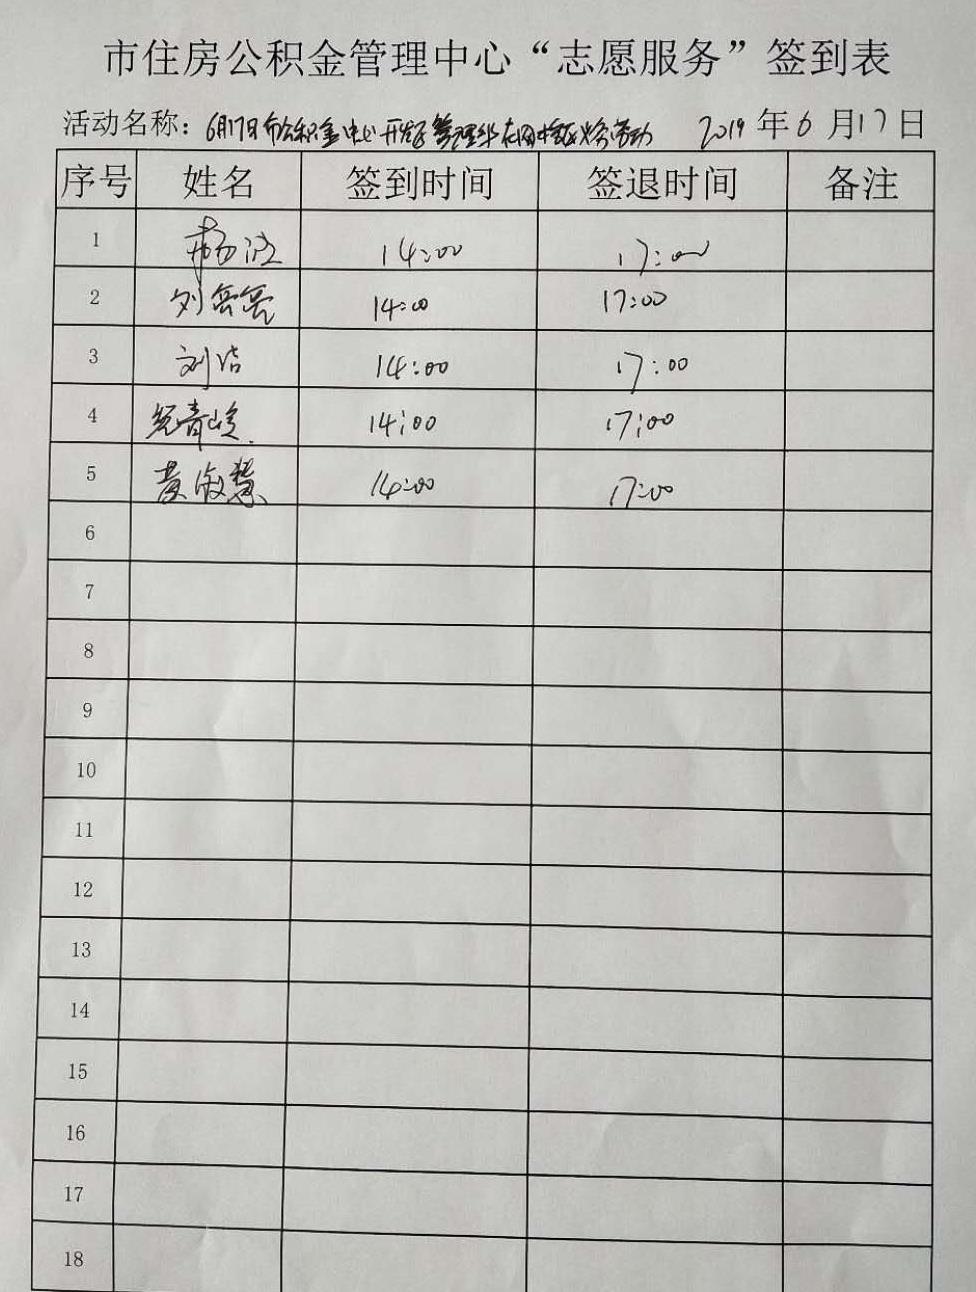 市住房公积金管理中心“志愿服务”签到表
活动名称：6月17日市公积金中心开发区管理 义务劳动 2019年6月17日
序号 姓名 签到时间 签退时间 备注
1 杨 14:00 17:00
2 刘 14:00 17:00
3 刘洁 14:00 17:00
4 青峻 14:00 17:00
5 黄淑慧 14:00 17:00
6
7
8
9
10
11
12
13
14
15
16
17
18